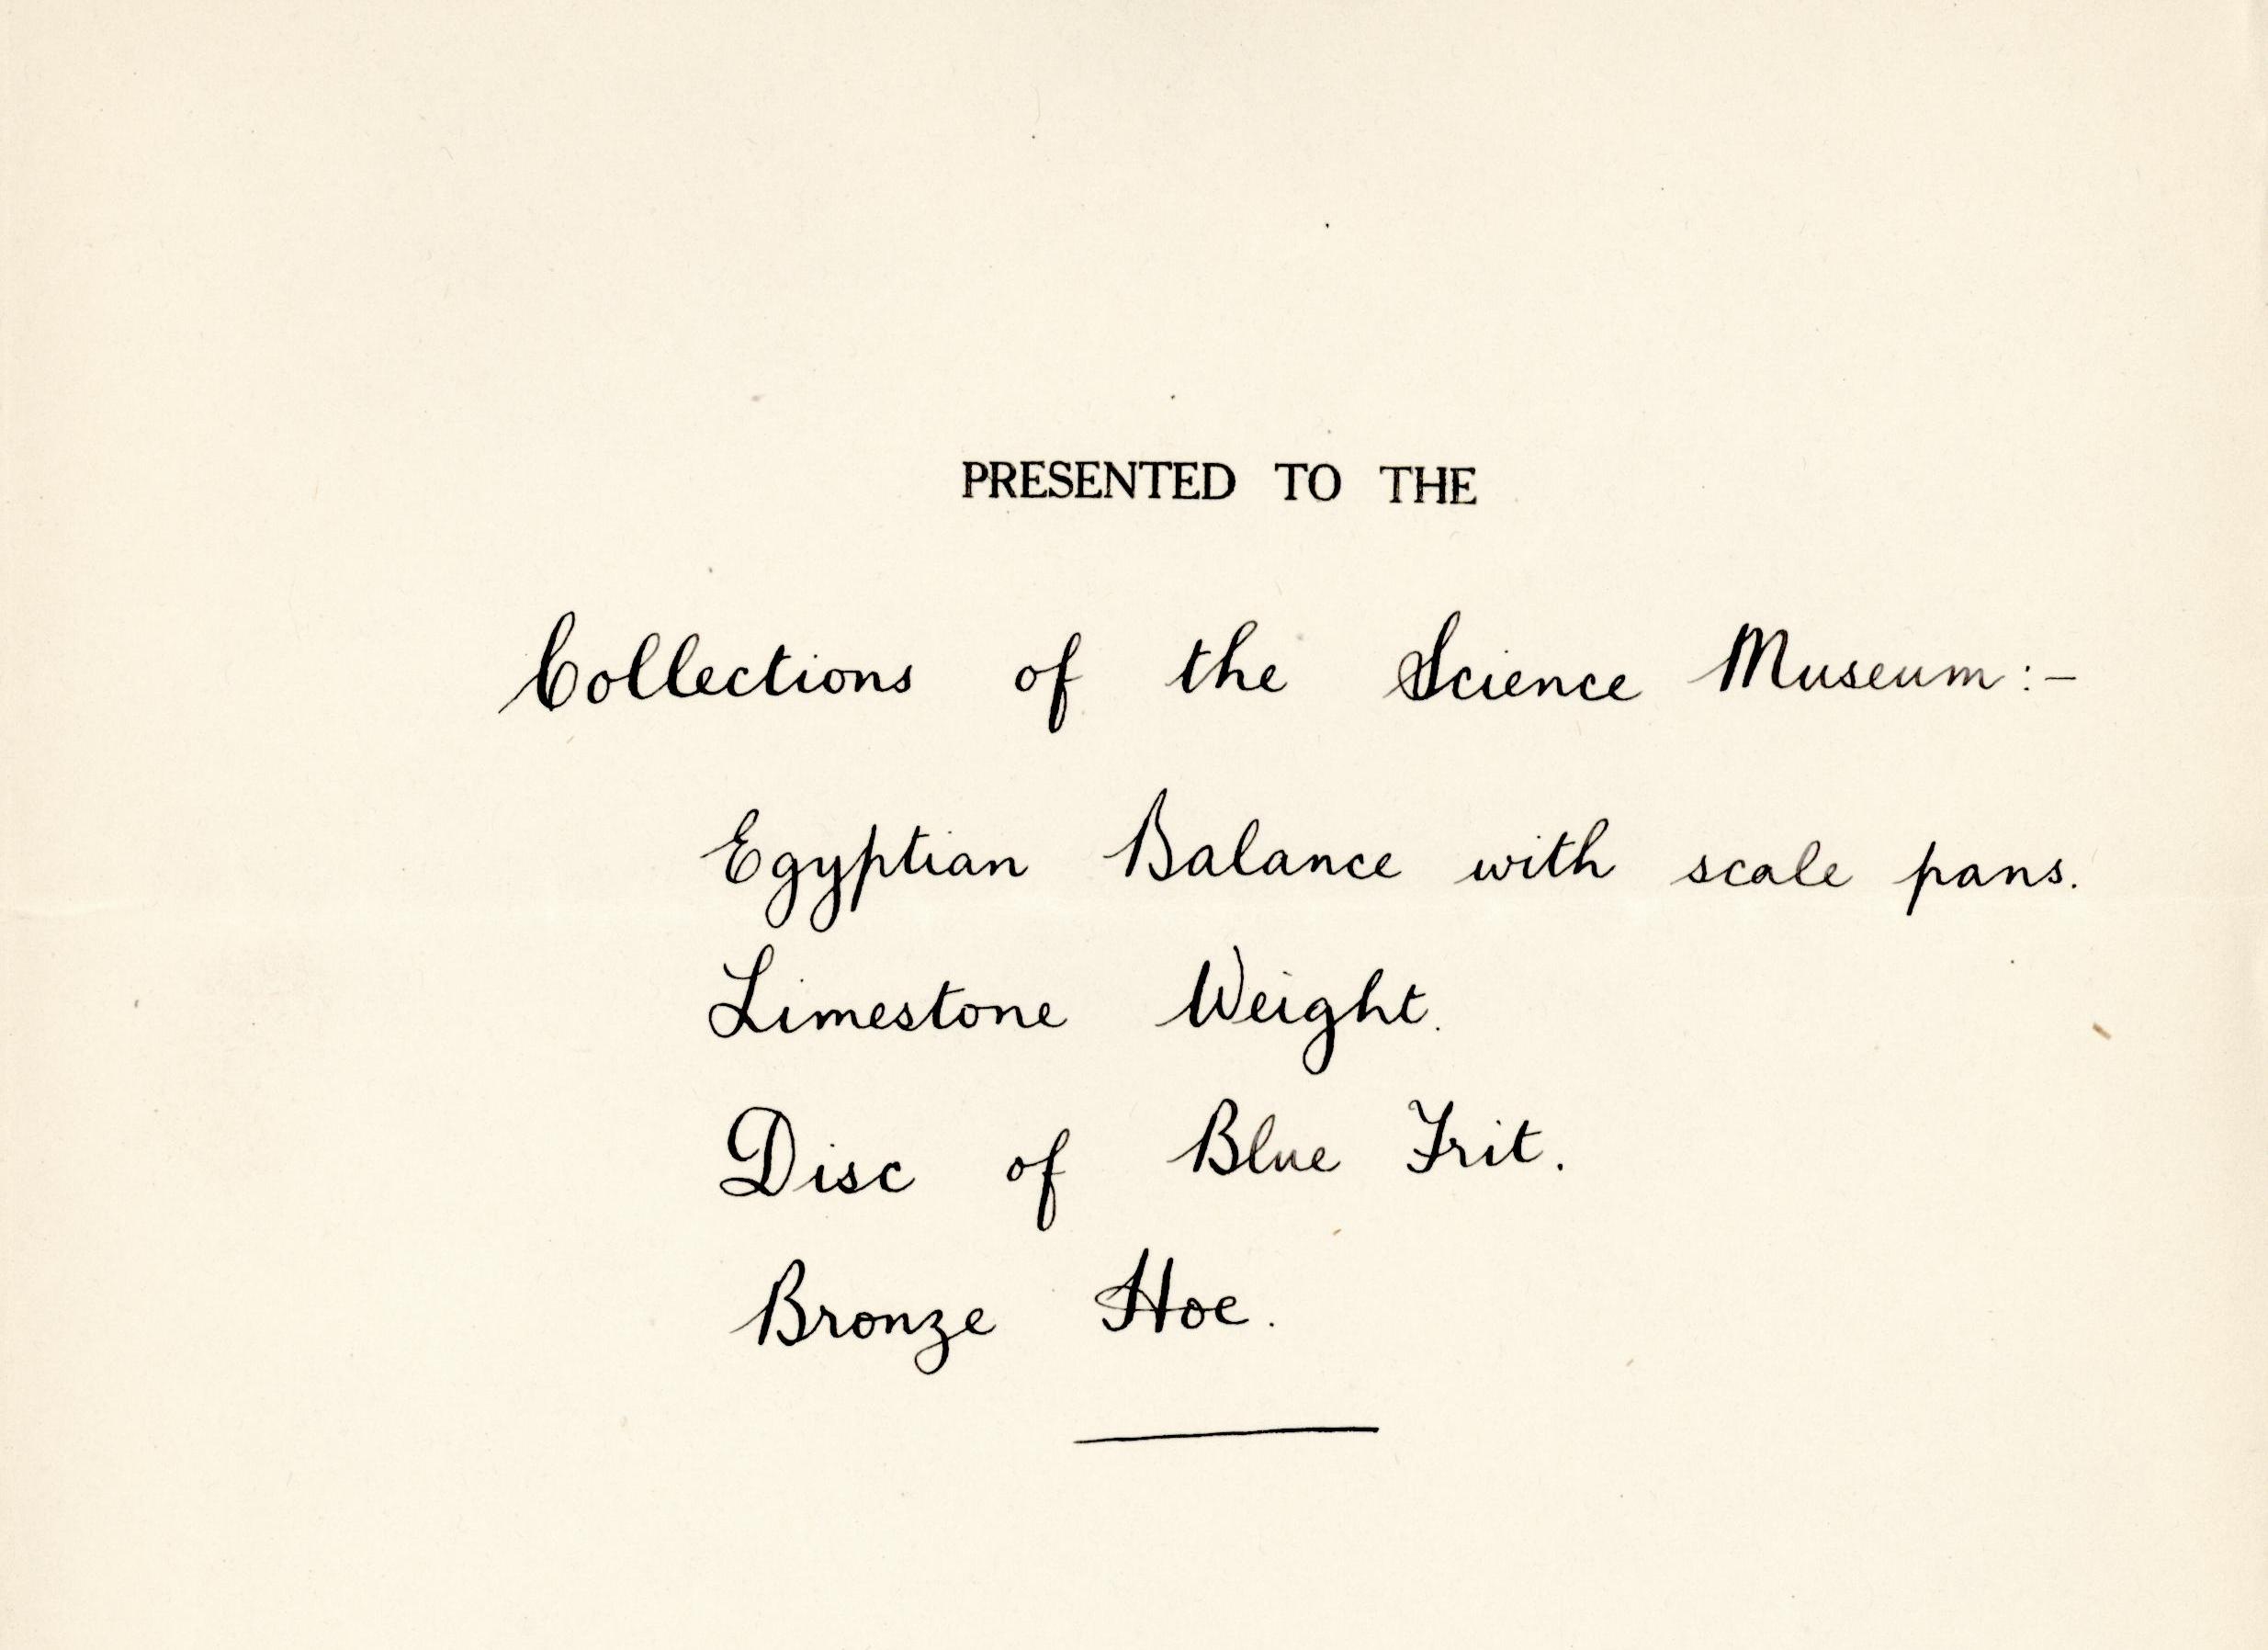 PRESENTED TO THE
Collections of the Science Museum:-
Egyptian Balance with scale pans.
Limestone Weight.
Disc of Blue Frit.
Bronze Hoe.